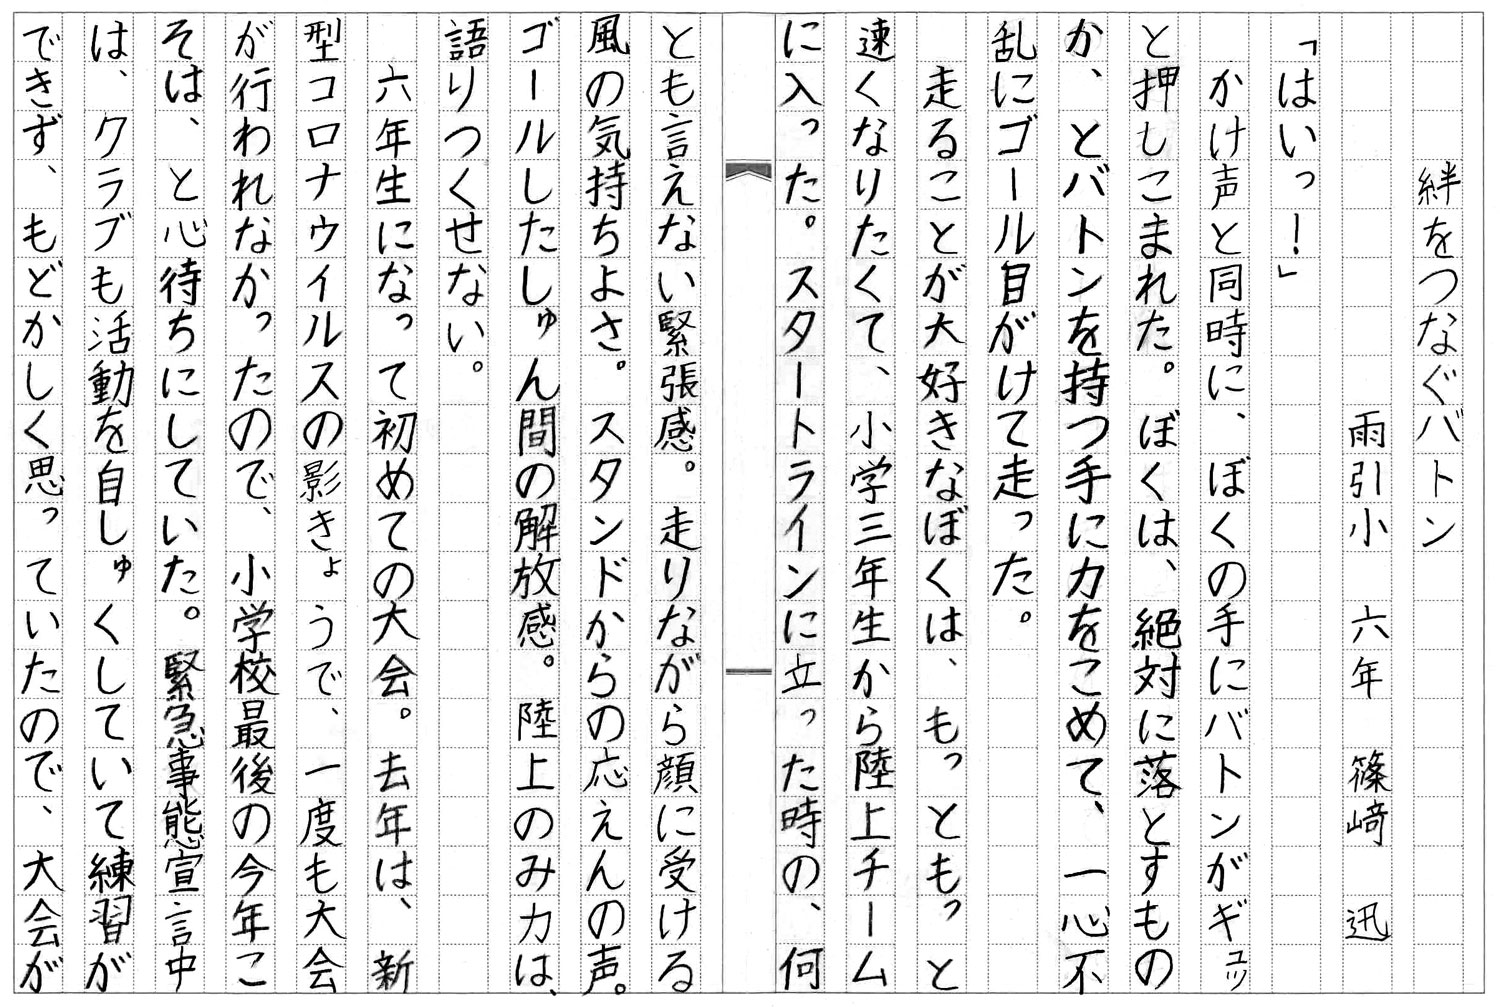 絆をつなぐバトン
雨引小　六年　篠﨑　迅
「はいっ！」
　かけ声と同時に、ぼくの手にバトンがギュッ
と押しこまれた。ぼくは、絶対に落とすもの
か、とバトンを持つ手に力をこめて、一心不
乱にゴール目がけて走った。
　走ることが大好きなぼくは、もっともっと
速くなりたくて、小学三年生から陸上チーム
に入った。スタートラインに立った時の、何
とも言えない緊張感。走りながら顔に受ける
風の気持ちよさ。スタンドからの応えんの声。
ゴールしたしゅん間の解放感。陸上のみ力は、
語りつくせない。
　六年生になって初めての大会。去年は、新
型コロナウイルスの影きょうで、一度も大会
が行われなかったので、小学校最後の今年こ
そは、と心待ちにしていた。緊急事態宣言中
は、クラブも活動を自しゅくしていて練習が
できず、もどかしく思っていたので、大会が